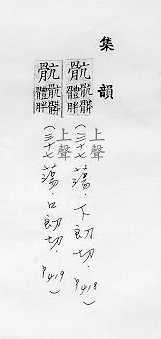 集韻
骯骯髒體胖
(三十七蕩.下朗切.P418)
上聲
骯骯髒體胖
(三十七蕩.口朗切.P419)
上聲